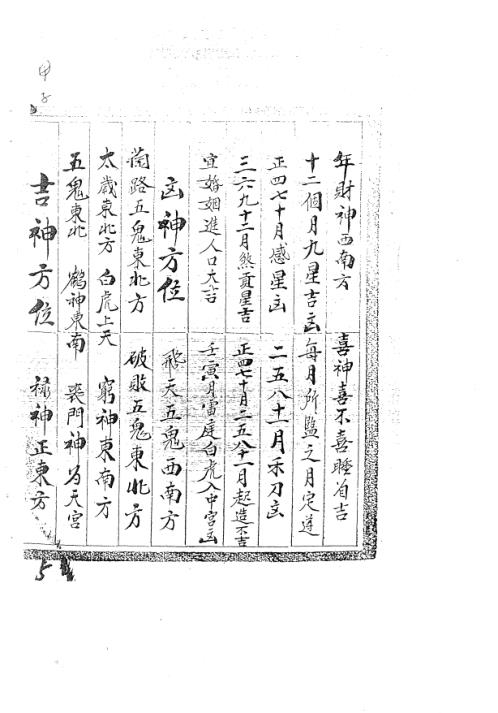 甲子
年財神西南方 喜神喜不喜睡自吉
十二個月九星吉凶每月所監之月定達
正四七十月惑星凶 二五八十一月禾刀凶
三六九十二月煞貢星吉 正四七十月二五八十一月起造不吉
宜婚姻進人口大吉 壬寅月寅庭白虎入中宮凶
凶神方位 飛天五鬼西南方
路五鬼東北方 破敗五鬼東北方
太歲東北方 白虎上天 窮神東南方
五鬼東北 鶴神東南 喪門神為天宮
吉神方位 祿神正東方
5